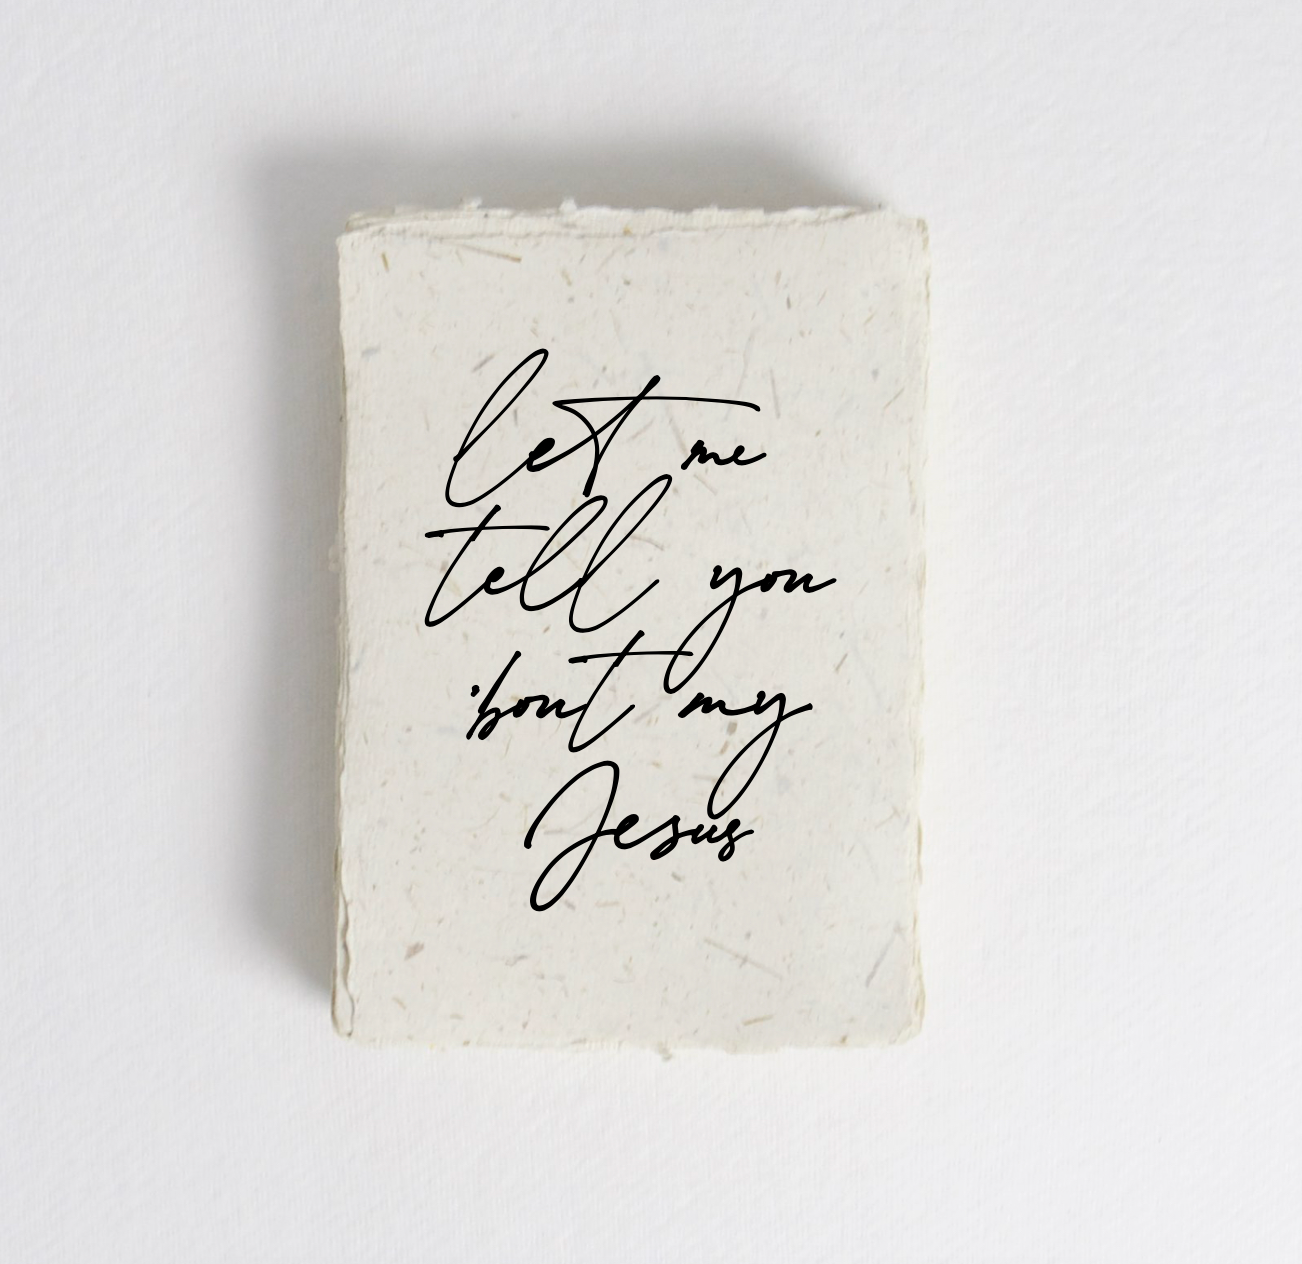 let me
tell you
'bout my
Jesus